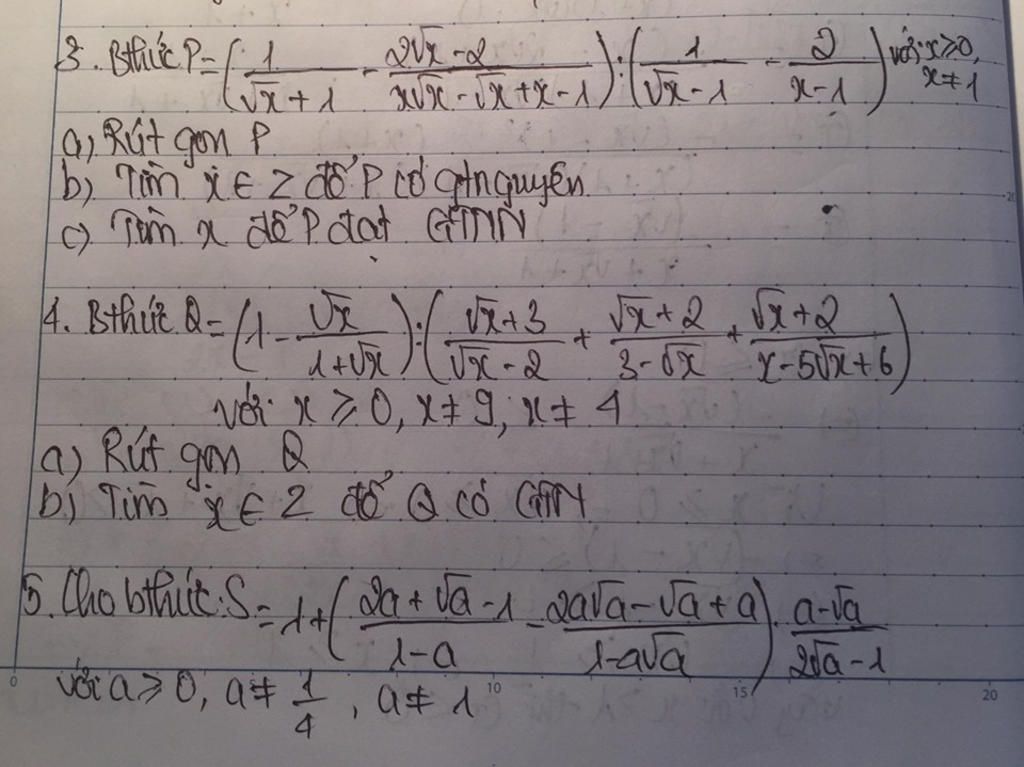 3. Bthức P = (1/(√x + 1) - (2√x - 2)/(x√x - √x + x - 1)) : (1/(√x - 1) - 2/(x - 1)) với x ≥ 0, x ≠ 1
a) Rút gọn P
b) Tìm x ∈ Z để P có gtnguyên
c) Tìm x để P đạt GTNN
4. Bthức Q = (1 - √x/(1 + √x)) : ((√x + 3)/(√x - 2) + (√x + 2)/(3 - √x) + (√x + 2)/(x - 5√x + 6))
với x ≥ 0, x ≠ 9, x ≠ 4
a) Rút gọn Q
b) Tìm x ∈ Z để Q có GTN
5. Cho bthức: S = 1 + ((2a + √a - 1)/(1 - a) - (2a√a - √a + a)/(1 - a√a)) . (a - √a)/(2√a - 1)
với a ≥ 0, a ≠ 1/4, a ≠ 1
0 10 15 20